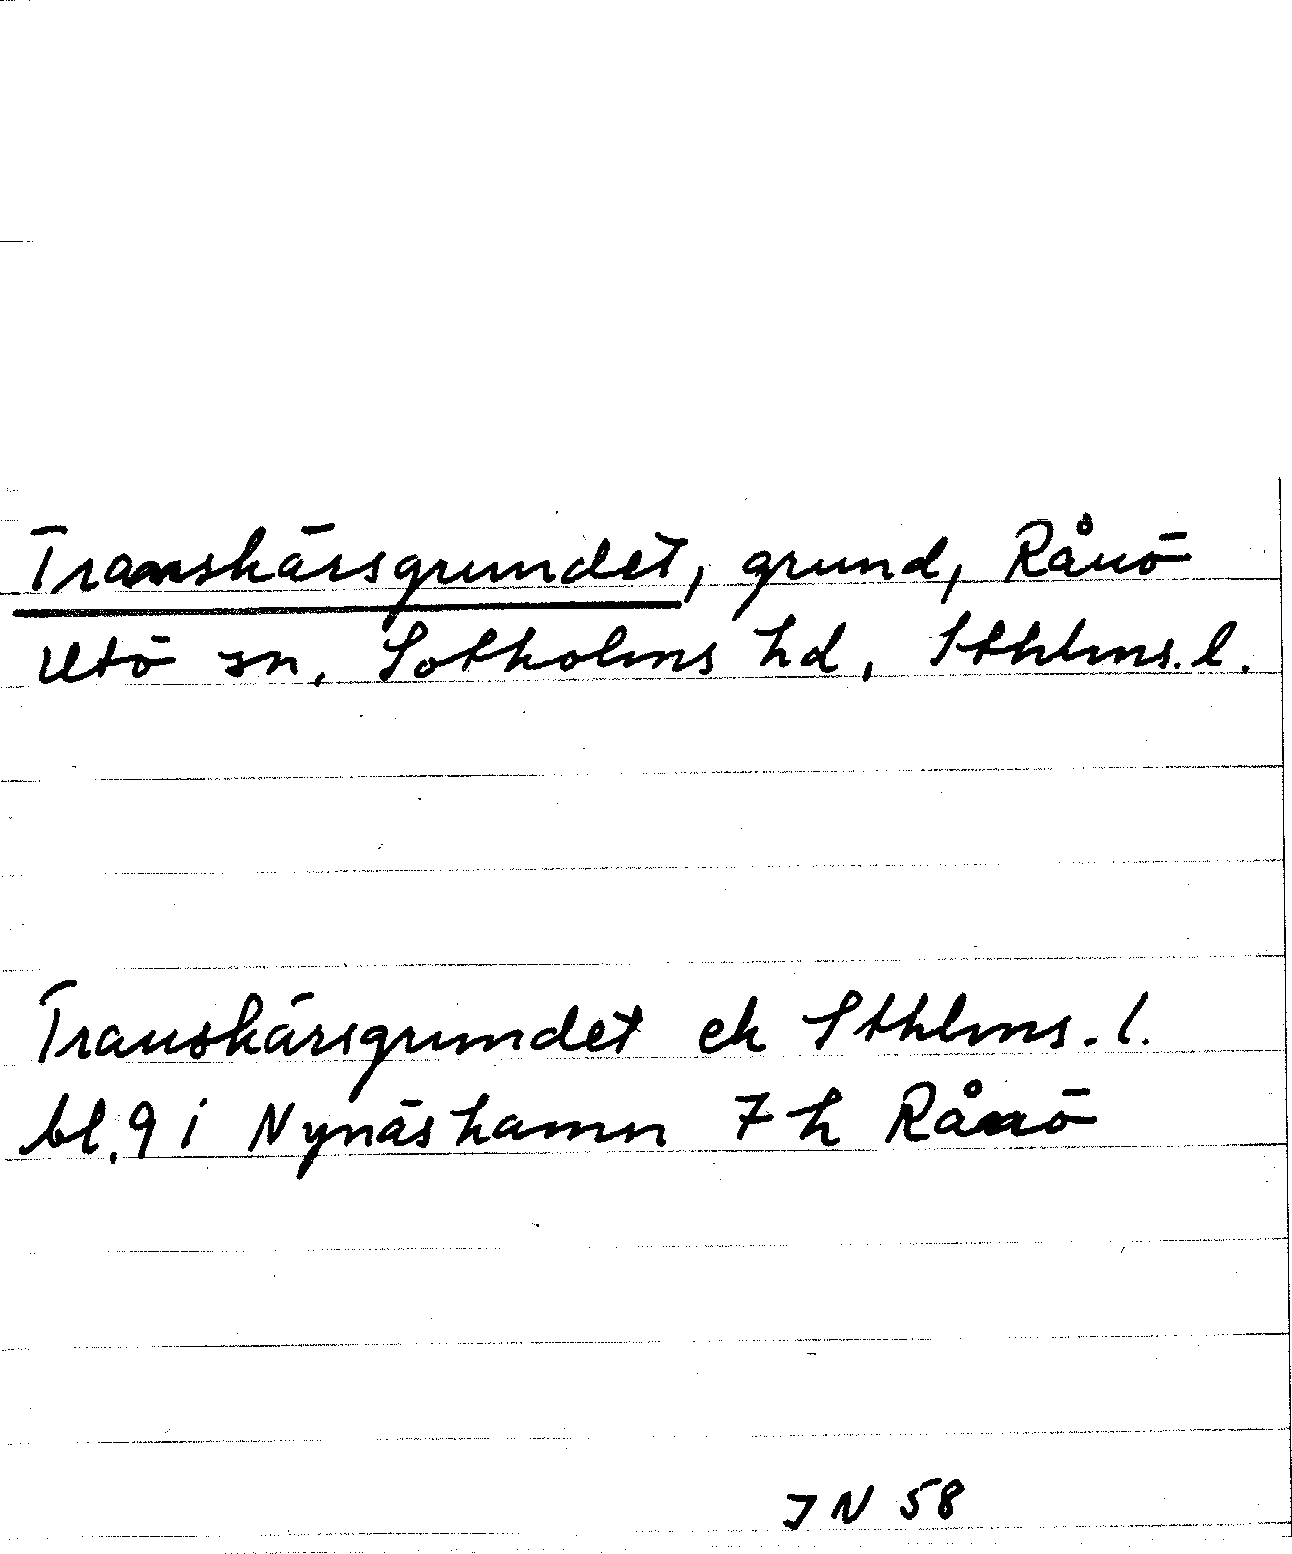 Transkärsgrundet, grund, Rånö
Utö sn, Sotholms hd, Sthlms. l.
Transkärsgrundet ek Sthlms. l.
bl. 9 i Nynäshamn 7 h Rånö
JN 58